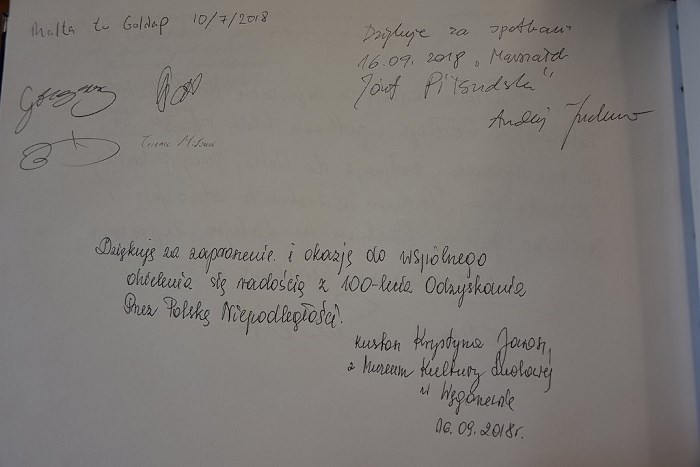 Malta to Gołdap 10/7/2018
Dziękuję za spotkanie
16.09.2018 „Marszałek
Józef Piłsudski"
Andrzej
Dziękuję za zaproszenie i okazję do wspólnego
dzielenia się radością z 100-lecia Odzyskania
Przez Polskę Niepodległości.
kustosz Krystyna Jarosz,
z Muzeum Kultury Ludowej
w Węgorzewie
16.09.2018r.